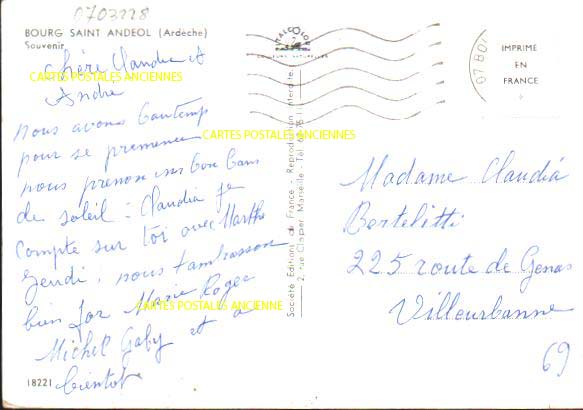 0703228
BOURG SAINT ANDEOL (Ardèche)
Souvenir
Chère Claudia et
André
nous avons beautemps
pour se promener
nous prenon un bon bans
de soleil : Claudia je
compte sur toi avec Marthe
jeudi, nous t'ambrasson
bien for Marie Roger
Michel Gaby et a
bientot
18221
CARTES POSTALES ANCIENNES
CARTES POSTALES ANCIENNES
CARTES POSTALES ANCIENNES
COULEURS NATURELLES
Société Editions de France - Reproduction interdite
2, rue Clapier, Marseille - Tél.
07 BO
IMPRIMÉ
EN
FRANCE
Madame Claudia
Bertelitti
225 route de Genas
Villeurbanne
69